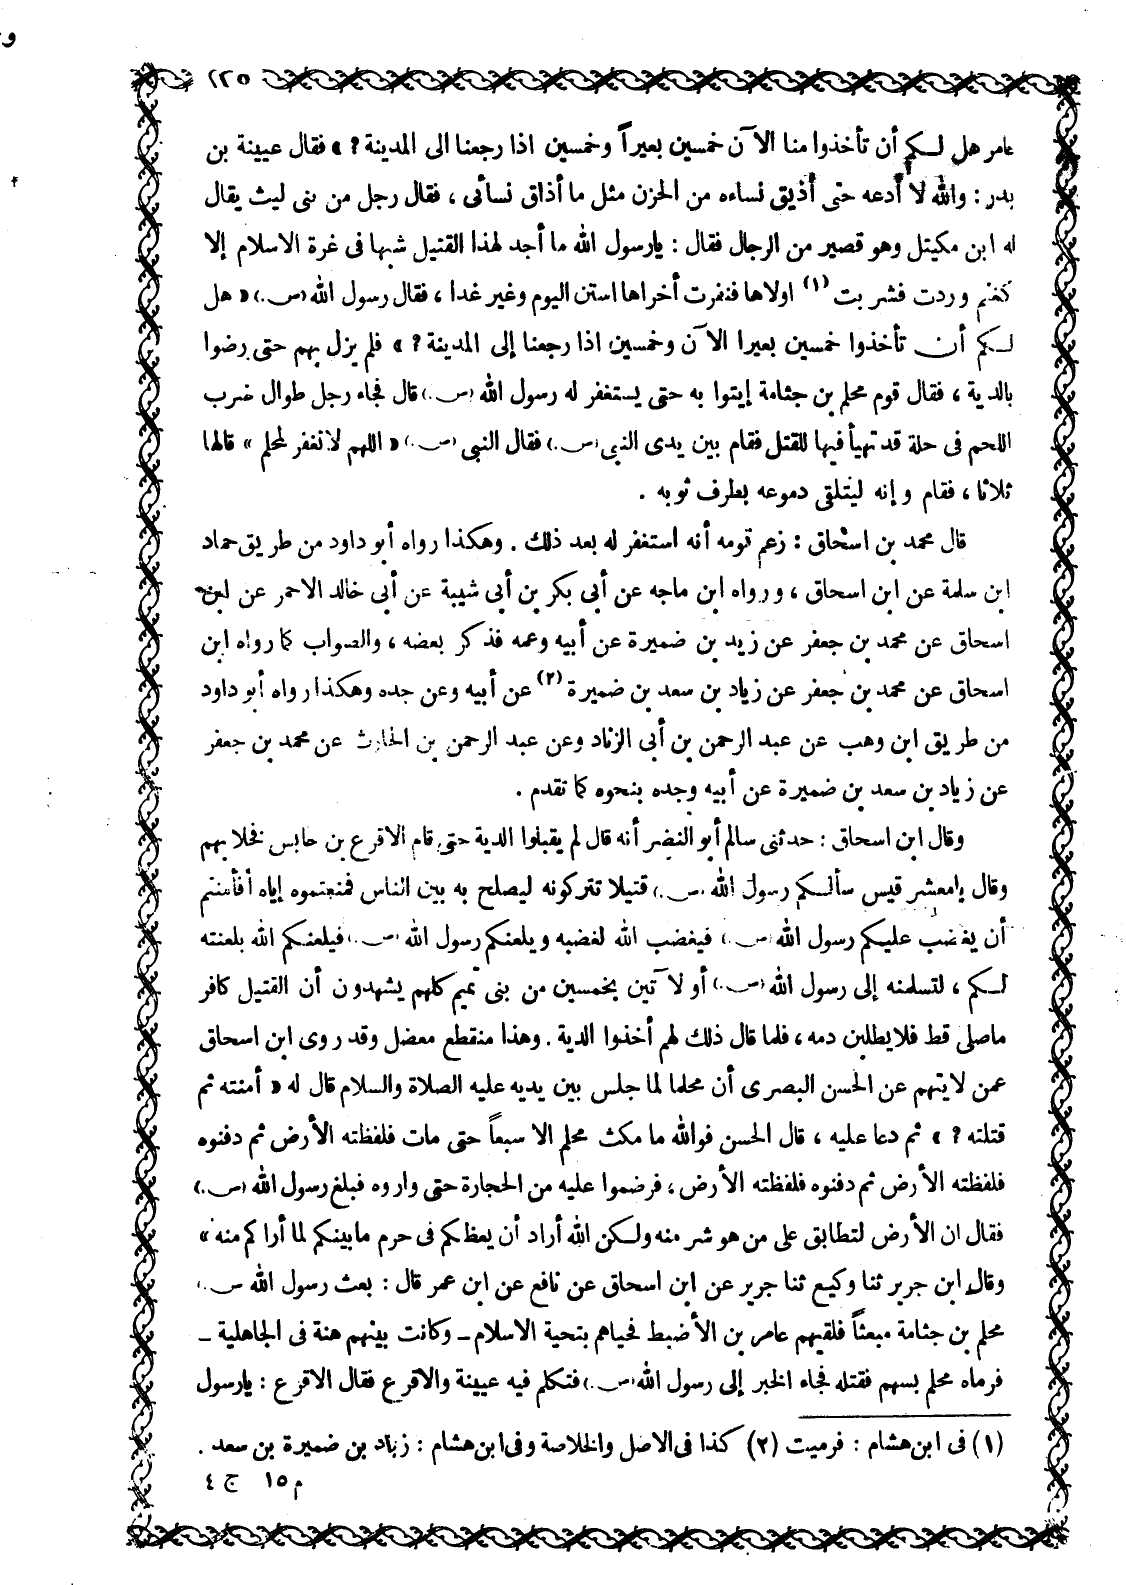 ٢٢٥
عامر هل لكم أن تأخذوا منا الآن خمسين بعيراً وخمسين اذا رجعنا الى المدينة ? » فقال عيينة بن
بدر : والله لا أدعه حتى أذيق نساءه من الحزن مثل ما أذاق نسائى ، فقال رجل من بنى ليث يقال
له ابن مكيتل وهو قصير من الرجال فقال : يارسول الله ما أجد لهذا القتيل شبها فى غرة الاسلام إلا
كغنم وردت فشربت (١) اولاها فنفرت أخراها استن اليوم وغير غدا ، فقال رسول الله (ص.) « هل
لكم أن تأخذوا خمسين بعيرا الآن وخمسين اذا رجعنا إلى المدينة ? » فلم يزل بهم حتى رضوا
بالدية ، فقال قوم محلم بن جثامة إيتوا به حتى يستغفر له رسول الله (ص.) قال فجاء رجل طوال ضرب
اللحم فى حلة قد تهيأ فيها للقتل فقام بين يدى النبى (ص.) فقال النبى (ص.) « اللهم لا تغفر لمحلم » قالها
ثلاثا ، فقام وإنه ليتلقى دموعه بطرف ثوبه .
قال محمد بن اسحاق : زعم قومه أنه استغفر له بعد ذلك . وهكذا رواه أبو داود من طريق حماد
ابن سلمة عن ابن اسحاق ، ورواه ابن ماجه عن أبى بكر بن أبى شيبة عن أبى خالد الاحمر عن ابن
اسحاق عن محمد بن جعفر عن زيد بن ضميرة عن أبيه وعمه فذكر بعضه ، والصواب كما رواه ابن
اسحاق عن محمد بن جعفر عن زياد بن سعد بن ضميرة (٢) عن أبيه وعن جده وهكذا رواه أبو داود
من طريق ابن وهب عن عبد الرحمن بن أبى الزناد وعن عبد الرحمن بن الحارث عن محمد بن جعفر
عن زياد بن سعد بن ضميرة عن أبيه وجده بنحوه كما تقدم .
وقال ابن اسحاق : حدثنى سالم أبو النضر أنه قال لم يقبلوا الدية حتى قام الاقرع بن حابس فخلا بهم
وقال يامعشر قيس سألكم رسول الله (ص.) قتيلا تتركونه ليصلح به بين الناس فمنعتموه إياه أفأمنتم
أن يغضب عليكم رسول الله (ص.) فيغضب الله لغضبه ويلعنكم رسول الله (ص.) فيلعنكم الله بلعنته
لكم ، لتسلمنه إلى رسول الله (ص.) أو لآتين بخمسين من بنى تميم كلهم يشهدون أن القتيل كافر
ماصلى قط فلا يطلبن دمه ، فلما قال ذلك لهم أخذوا الدية . وهذا منقطع معضل وقد روى ابن اسحاق
عمن لا يتهم عن الحسن البصرى أن محلما لما جلس بين يديه عليه الصلاة والسلام قال له « أمنته ثم
قتلته ? » ثم دعا عليه ، قال الحسن فوالله ما مكث محلم الا سبعاً حتى مات فلفظته الأرض ثم دفنوه
فلفظته الأرض ثم دفنوه فلفظته الأرض ، فرضموا عليه من الحجارة حتى واروه فبلغ رسول الله (ص.)
فقال ان الأرض لتطابق على من هو شر منه ولكن الله أراد أن يعظكم فى حرم مابينكم لما أراكم منه »
وقال ابن جرير ثنا وكيع ثنا جرير عن ابن اسحاق عن نافع عن ابن عمر قال : بعث رسول الله ص.)
محلم بن جثامة مبعثاً فلقيهم عامر بن الأضبط فحياهم بتحية الاسلام ـ وكانت بينهم هنة فى الجاهلية ـ
فرماه محلم بسهم فقتله فجاء الخبر إلى رسول الله (ص.) فتكلم فيه عيينة والاقرع فقال الاقرع : يارسول
(١) فى ابن هشام : فرميت (٢) كذا فى الاصل والخلاصة وفى ابن هشام : زياد بن ضميرة بن سعد .
م ١٥ ج ٤